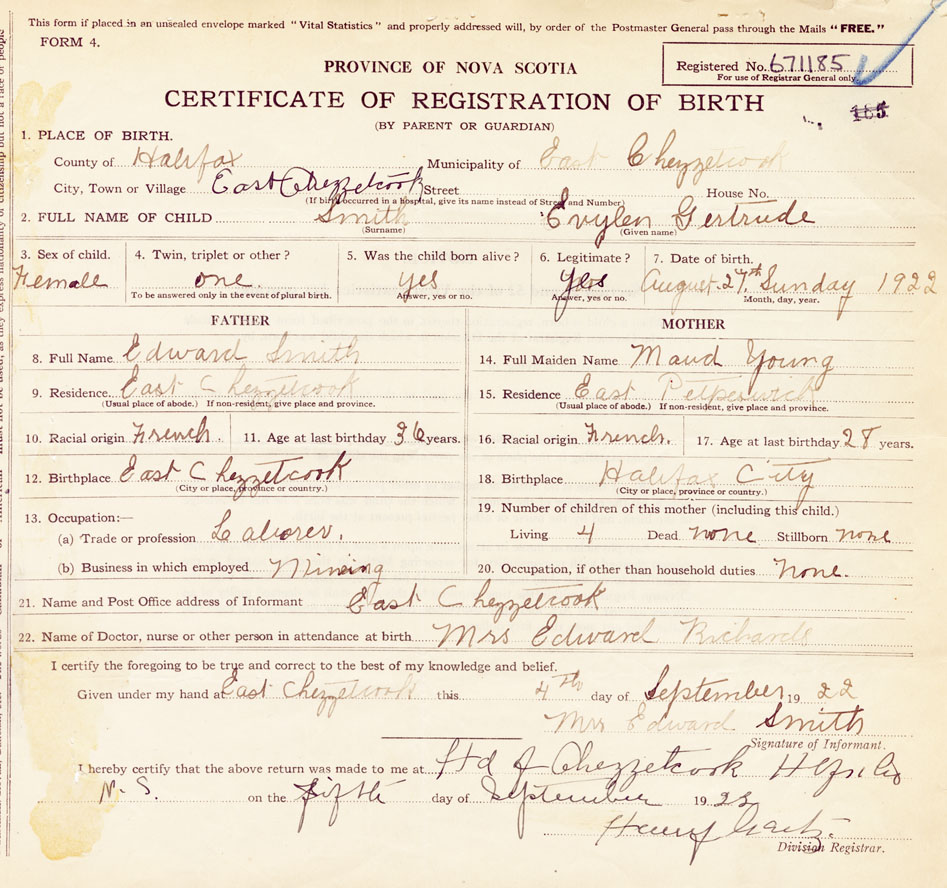 This form if placed in an unsealed envelope marked "Vital Statistics" and properly addressed will, by order of the Postmaster General pass through the Mails "FREE."
FORM 4.
Registered No. 671185
For use of Registrar General only.
PROVINCE OF NOVA SCOTIA
CERTIFICATE OF REGISTRATION OF BIRTH
(BY PARENT OR GUARDIAN)
1. PLACE OF BIRTH.
County of Halifax Municipality of East Chezzetcook
City, Town or Village East Chezzetcook Street House No.
(If birth occurred in a hospital, give its name instead of Street and Number)
2. FULL NAME OF CHILD Smith Evylen Gertrude
(Surname) (Given name)
3. Sex of child. 4. Twin, triplet or other? 5. Was the child born alive? 6. Legitimate? 7. Date of birth.
Female one. yes yes August 27th Sunday 1922
To be answered only in the event of plural birth. Answer, yes or no. Answer, yes or no. Month, day, year.
FATHER
8. Full Name Edward Smith
9. Residence East Chezzetcook
(Usual place of abode.) If non-resident, give place and province.
10. Racial origin French. 11. Age at last birthday 36 years.
12. Birthplace East Chezzetcook
(City or place, province or country.)
13. Occupation:—
(a) Trade or profession Laborer.
(b) Business in which employed Mining
MOTHER
14. Full Maiden Name Maud Young
15. Residence East Petpeswick
(Usual place of abode.) If non-resident, give place and province.
16. Racial origin French. 17. Age at last birthday 28 years.
18. Birthplace Halifax City
(City or place, province or country.)
19. Number of children of this mother (including this child.)
Living 4 Dead none Stillborn none
20. Occupation, if other than household duties None.
21. Name and Post Office address of Informant East Chezzetcook
22. Name of Doctor, nurse or other person in attendance at birth Mrs Edward Richards
I certify the foregoing to be true and correct to the best of my knowledge and belief.
Given under my hand at East Chezzetcook this 4th day of September 19 22
Mrs Edward Smith
Signature of Informant.
I hereby certify that the above return was made to me at Hd of Chezzetcook
N. S. on the fifth day of September 19 22
Division Registrar.